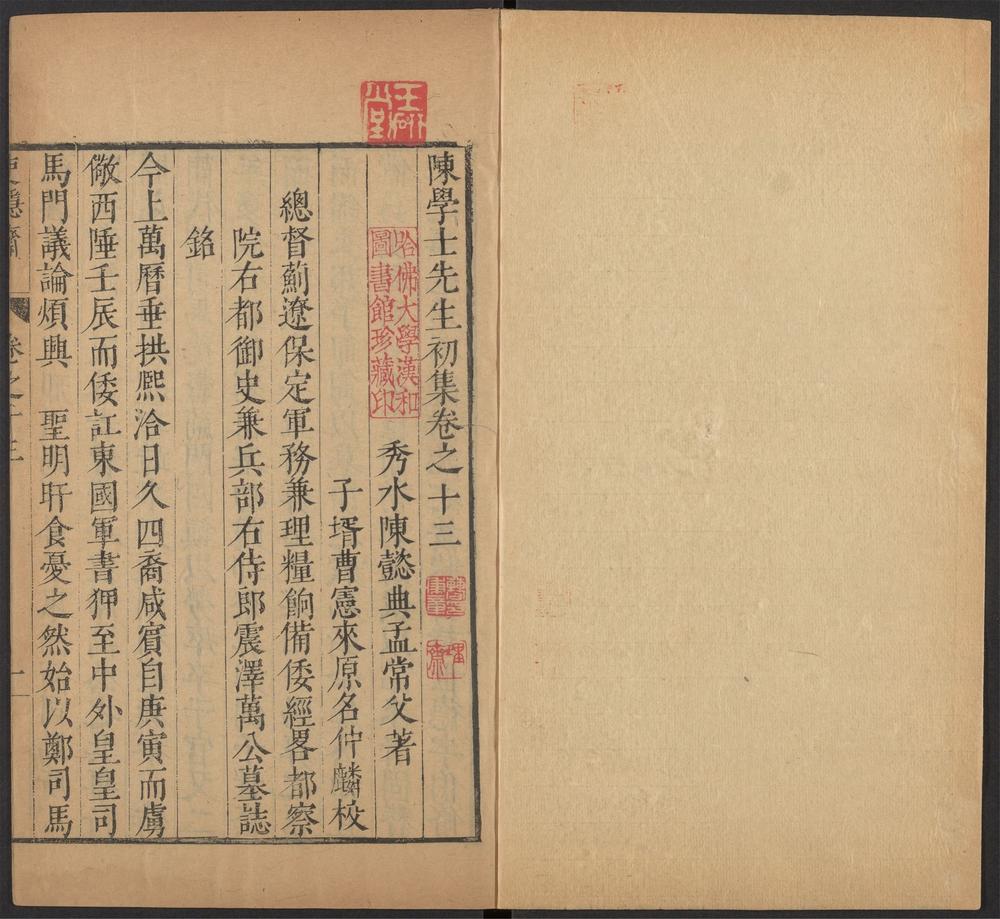 陳學士先生初集卷之十三
秀水陳懿典孟常父著
子壻曹憲來原名仲麟校
總督薊遼保定軍務兼理糧餉備倭經畧都察
院右都御史兼兵部右侍郎震澤萬公墓誌
銘
今上萬曆垂拱熙洽日久四裔咸賓自庚寅而虜
儆西陲壬辰而倭訌東國軍書狎至中外皇皇司
馬門議論煩興 聖明旰食憂之然始以鄭司馬
卷之十三
一
哈佛大學漢和
圖書館珍藏印